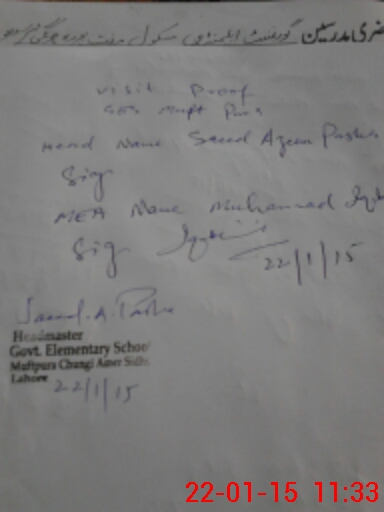 گورنمنٹ ایلیمنٹری سکول
Visit Proof
GES Muft Pura
Head Name Saeed Azeem Pasha
Sig
MEA Name Muhammad
Sig
22/1/15
Saeed.A.Pasha
Headmaster
Govt. Elementary School
Muftpura Changi Amer Sidhu
Lahore
22/1/15
22-01-15 11:33